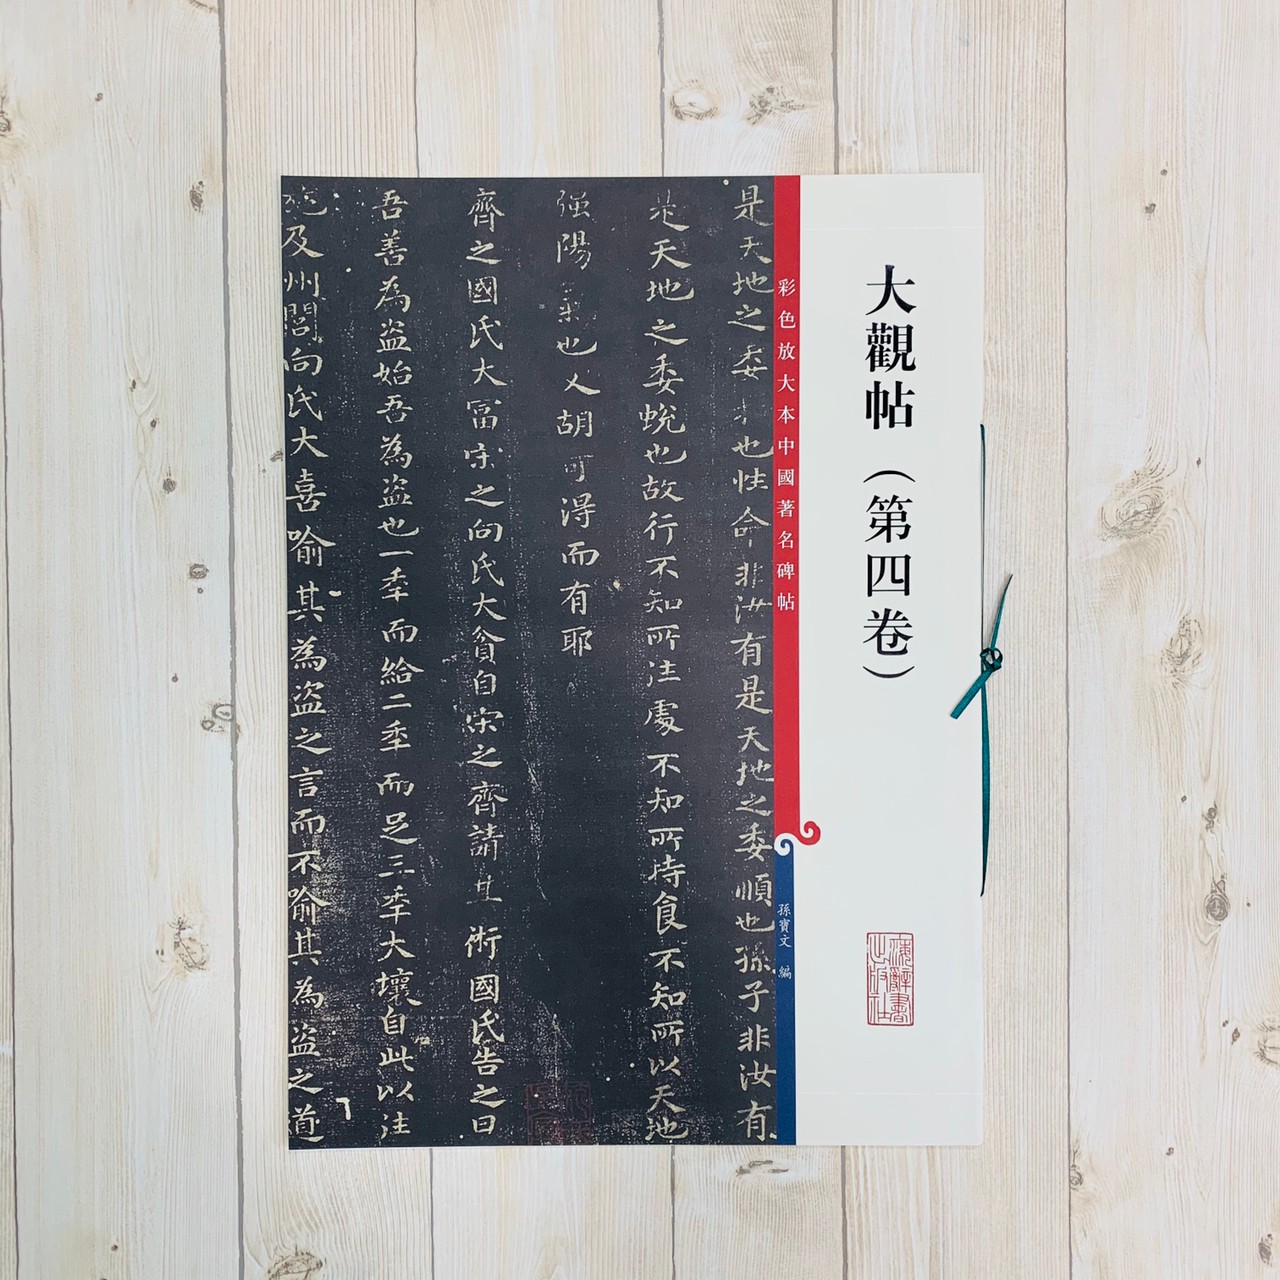 大觀帖（第四卷）
彩色放大本中國著名碑帖
孫寶文 編
海辭書出版社
是天地之委 也性命非汝有是天地之委順也孫子非汝有
是天地之委蛻也故行不知所往處不知所持食不知所以天地
强陽氣也又胡可得而有耶
齊之國氏大冨宋之向氏大貧自宋之齊請其術國氏告之曰
吾善為盗始吾為盗也一季而給二季而足三季大壤自此以往
施及州閭向氏大喜喻其為盗之言而不喻其為盗之道